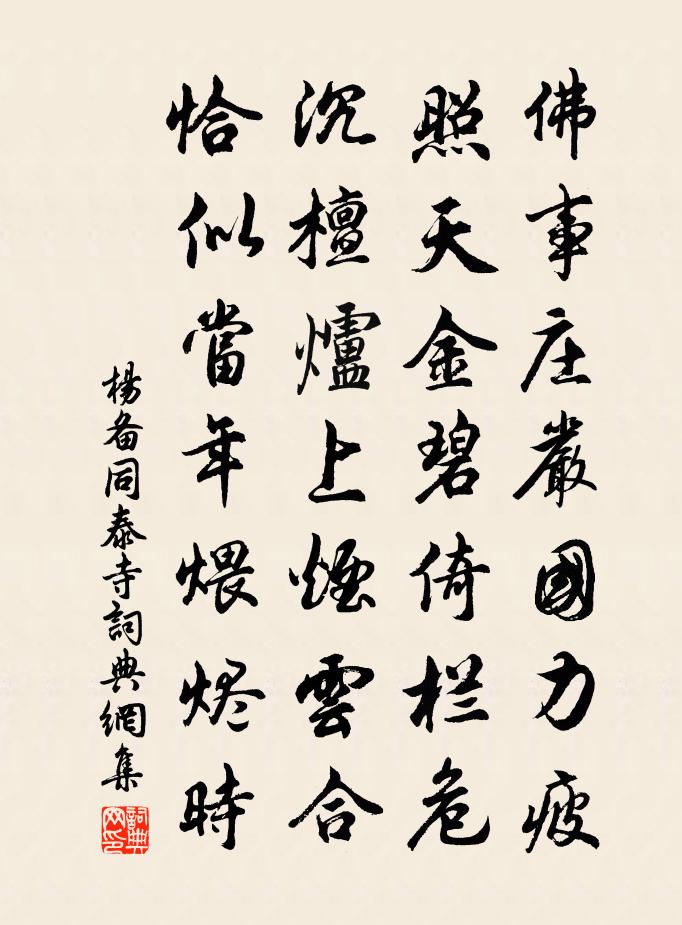 佛事庄嚴國力疲
照天金碧倚栏危
沉檀爐上煙雲合
恰似當年煨烬時
楊备同泰寺詞典網集
詞典网印